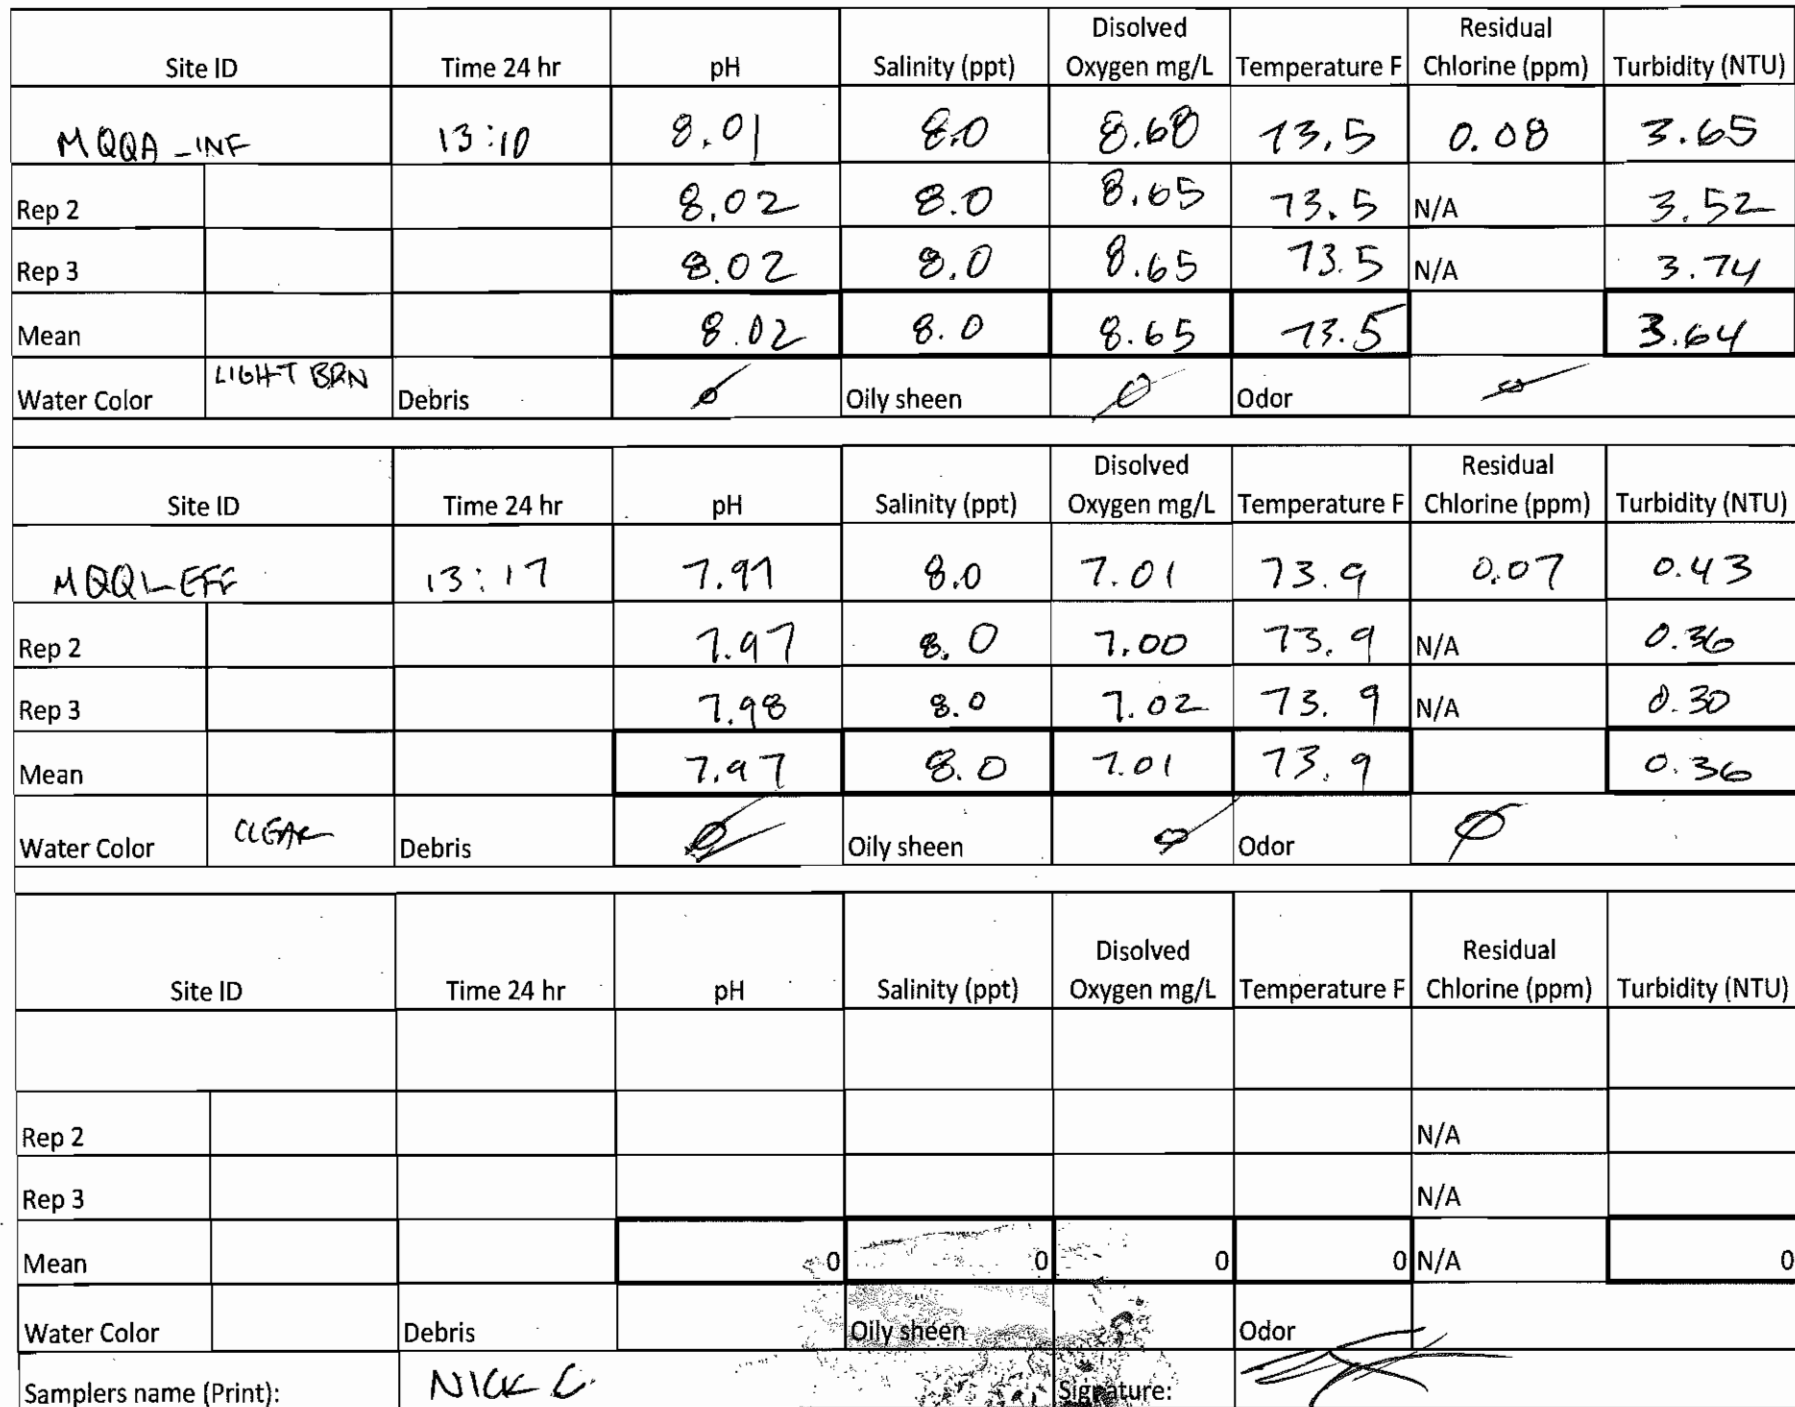 Site ID Time 24 hr pH Salinity (ppt) Disolved Oxygen mg/L Temperature F Residual Chlorine (ppm) Turbidity (NTU)
MQQA-INF 13:10 8.01 8.0 8.68 73.5 0.08 3.65
Rep 2 8.02 8.0 8.65 73.5 N/A 3.52
Rep 3 8.02 8.0 8.65 73.5 N/A 3.74
Mean 8.02 8.0 8.65 73.5 3.64
Water Color LIGHT BRN Debris Ø Oily sheen Ø Odor Ø
Site ID Time 24 hr pH Salinity (ppt) Disolved Oxygen mg/L Temperature F Residual Chlorine (ppm) Turbidity (NTU)
13:17 7.97 8.0 7.01 73.9 0.07 0.43
Rep 2 7.97 8.0 7.00 73.9 N/A 0.36
Rep 3 7.98 8.0 7.02 73.9 N/A 0.30
Mean 7.97 8.0 7.01 73.9 0.36
Water Color CLEAR Debris Ø Oily sheen Ø Odor Ø
Site ID Time 24 hr pH Salinity (ppt) Disolved Oxygen mg/L Temperature F Residual Chlorine (ppm) Turbidity (NTU)
Rep 2 N/A
Rep 3 N/A
Mean 0 0 0 0 N/A 0
Water Color Debris Oily sheen Odor
Samplers name (Print): NICK C. Signature: